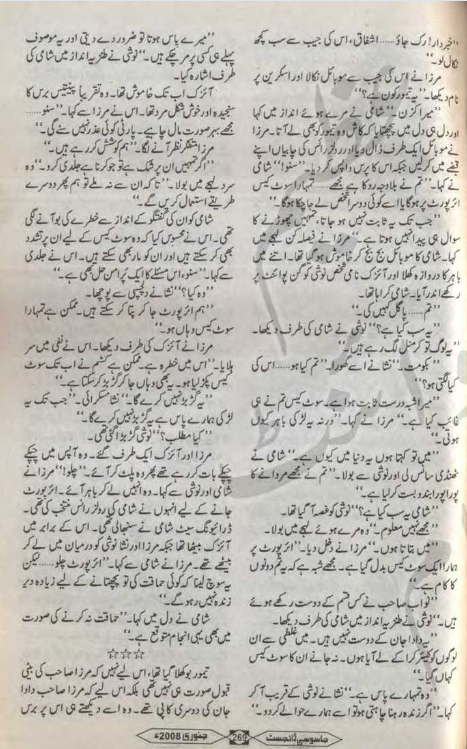 ”خبردار! رک جاؤ...... اشفاق، اس کی جیب سے سب کچھ
نکال لو۔“
مرزا نے اس کی جیب سے موبائل نکالا اور اسکرین پر
نام دیکھا۔ ”یہ تیمور کون ہے؟“
”میرا کزن۔“ شامی نے مرے ہوئے انداز میں کہا
اور دل ہی دل میں پچھتایا کہ کاش وہ تیمور کو بھی لے آتا۔ مرزا
نے موبائل ایک طرف ڈال دیا اور رولز رائس کی چابیاں اپنے
قبضے میں کر لیں جبکہ اس کا پرس واپس کر دیا۔ ”سنو!“ شامی
نے کہا۔ ”تم نے بلاوجہ روکا ہے مجھے۔ تمہارا سوٹ کیس
ائرپورٹ پر ہو گا یا اسے کوئی دوسرا شخص لے جا چکا ہو گا۔“
”جب تک یہ ثابت نہیں ہو جاتا، تمہیں چھوڑنے کا
سوال ہی پیدا نہیں ہوتا ہے۔“ مرزا نے فیصلہ کن لہجے میں
کہا۔ شامی کا موبائل بج بج کر خاموش ہو گیا تھا۔ اتنے میں
باہر کا دروازہ کھلا اور آئزک نامی شخص نوشی کو گن پوائنٹ پر
رکھے اندر آیا۔ شامی کراہا تھا۔
”تم...... پاگل نہیں کی۔“
”یہ سب کیا ہے؟“ نوشی نے شامی کی طرف دیکھا۔
”یہ لوگ تو کرمنل لگ رہے ہیں۔“
”بکومت۔“ نشا نے اسے گھورا۔ ”تم کیا ہو...... اس کی
کیا لگتی ہو؟“
”میرا شبہ درست ثابت ہوا ہے۔ سوٹ کیس تم نے ہی
غائب کیا ہے۔“ مرزا نے کہا۔ ”ورنہ یہ لڑکی باہر کیوں
ہوتی۔“
”میں تو کہتا ہوں یہ دنیا میں کیوں ہے۔“ شامی نے
ٹھنڈی سانس لی اور نوشی سے بولا۔ ”تم نے مجھے مروانے کا
پورا پورا بندوبست کر لیا ہے۔“
”شامی یہ سب کیا ہے؟“ نوشی کو غصہ آ گیا تھا۔
”مجھے نہیں معلوم۔“ وہ مرے ہوئے لہجے میں بولا۔
”میں بتاتا ہوں۔“ مرزا نے دخل دیا۔ ”ائرپورٹ پر
ہمارا ایک سوٹ کیس بدل گیا ہے۔ مجھے شبہ ہے کہ یہ تم دونوں
کا کام ہے۔“
”نواب صاحب نے کس قسم کے دوست رکھے ہوئے
ہیں۔“ نوشی نے طنزیہ انداز میں شامی کی طرف دیکھا۔
”یہ دادا جان کے دوست نہیں ہیں۔ میں غلطی سے ان
لوگوں کو کلیئر کرا کے لے آیا ہوں۔ نہ جانے ان کا سوٹ کیس
کہاں گیا۔“
”وہ تمہارے پاس ہے۔“ نشا نے نوشی کے قریب آ کر
کہا۔ ”اگر زندہ رہنا چاہتی ہو تو اسے ہمارے حوالے کر دو۔“
”میرے پاس ہوتا تو ضرور دے دیتی اور یہ موصوف
پہلے ہی کسی پر مر چکے ہیں۔“ نوشی نے طنزیہ انداز میں شامی کی
طرف اشارہ کیا۔
آئزک اب تک خاموش تھا۔ وہ تقریباً پینتیس برس کا
سنجیدہ اور خوش شکل مرد تھا۔ اس نے مرزا سے کہا۔ ”سنو......
مجھے بہر صورت مال چاہیے۔ پارٹی کوئی عذر نہیں سنے گی۔“
مرزا متفکر نظر آنے لگا۔ ”ہم کوشش کر رہے ہیں۔“
”اگر تمہیں ان پر شک ہے تو جو کرنا ہے جلدی کرو۔“ وہ
سرد لہجے میں بولا۔ ”تاکہ ان سے نہ ملے تو ہم پھر دوسرے
طریقے استعمال کریں گے۔“
شامی کو ان کی گفتگو کے انداز سے خطرے کی بو آنے لگی
تھی۔ اس نے محسوس کیا کہ وہ سوٹ کیس کے لیے ان پر تشدد
بھی کر سکتے ہیں اور ان کو مار بھی سکتے ہیں۔ اس نے جلدی
سے کہا۔ ”سنو، اس مسئلے کا ایک پُرامن حل بھی ہے۔“
”وہ کیا؟“ نشا نے دلچسپی سے پوچھا۔
”ہم ائرپورٹ جا کر پتا کر سکتے ہیں۔ ممکن ہے تمہارا
سوٹ کیس وہاں ہو۔“
مرزا نے آئزک کی طرف دیکھا۔ اس نے نفی میں سر
ہلایا۔ ”اس میں خطرہ ہے۔ ممکن ہے کسٹم نے اب تک سوٹ
کیس پکڑ لیا ہو۔ یہ بھی وہاں جا کر گڑبڑ کر سکتا ہے۔“
”یہ گڑبڑ نہیں کرے گا۔“ نشا مسکرائی۔ ”جب تک یہ
لڑکی ہمارے پاس ہے یہ گڑبڑ نہیں کرے گا۔“
”کیا مطلب؟“ نوشی گڑبڑا گئی تھی۔
مرزا اور آئزک ایک طرف گئے۔ وہ آپس میں چپکے
چپکے بات کر رہے تھے پھر وہ پلٹ کر آئے۔ ”چلو!“ مرزا نے
شامی اور نوشی سے کہا۔ وہ انہیں لے کر باہر آئے۔ ائرپورٹ
جانے کے لیے انہوں نے شامی کی رولز رائس منتخب کی تھی۔
ڈرائیونگ سیٹ شامی نے سنبھالی تھی۔ اس کے برابر میں
آئزک بیٹھا تھا جبکہ مرزا اور نشا نوشی کو درمیان میں لے کر
بیٹھے تھے۔ مرزا نے شامی سے کہا۔ ”ائرپورٹ چلو...... لیکن
یہ سوچ لینا کہ کوئی حماقت کی تو پچھتانے کے لیے زیادہ دیر
زندہ نہیں رہو گے۔“
شامی نے دل میں کہا۔ ”حماقت نہ کرنے کی صورت
میں بھی یہی انجام متوقع ہے۔“
☆☆☆
تیمور بوکھلا گیا تھا، اس لیے نہیں کہ مرزا صاحب کی بیٹی
قبول صورت ہی نہیں تھی بلکہ اس لیے کہ مرزا صاحب دادا
جان کی دوسری کاپی تھے۔ وہ اسے دیکھتے ہی اس پر برس
جاسوسی ڈائجسٹ 269 جنوری 2008ء